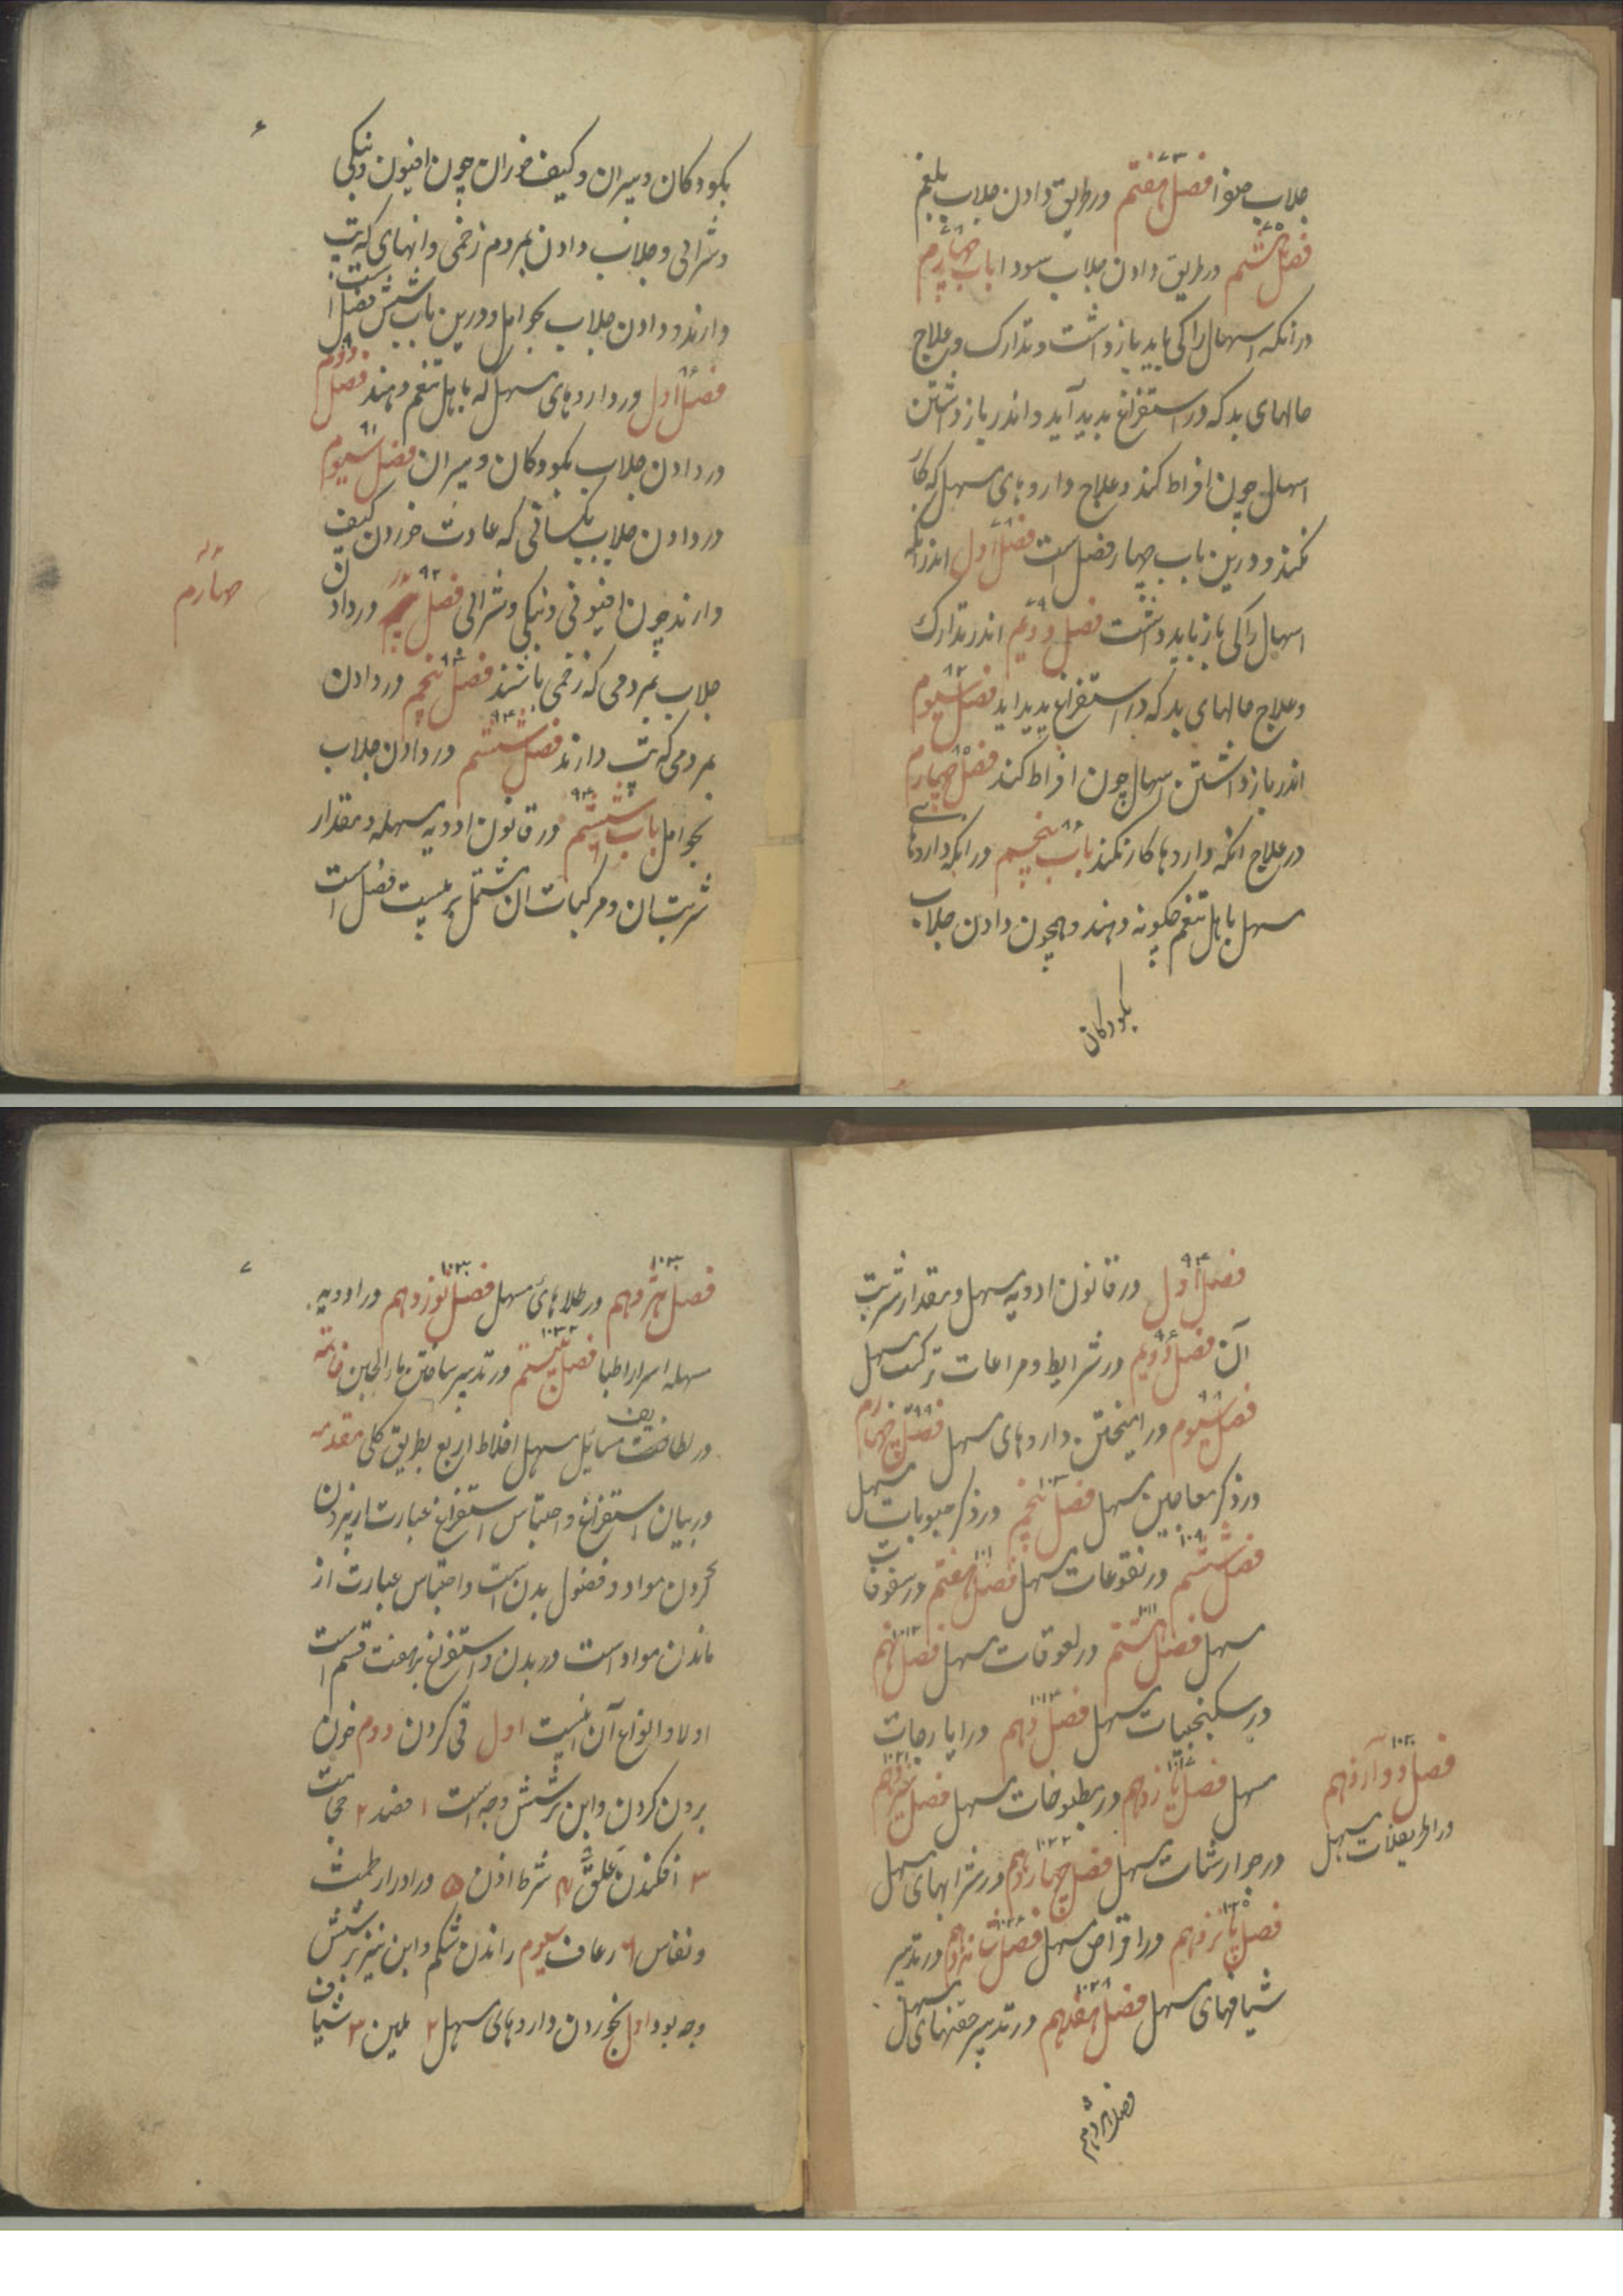 جلاب صفرا فصل هفتم در طریق دادن جلاب بلغم
فصل هشتم در طریق دادن جلاب سودا باب چهارم
در انکه اسهال را کی باید باز داشت و تدارک و علاج
حالهای بد که در استفراغ بدید آید و اندر باز داشتن
اسهال چون افراط کند و علاج داروهای مسهل که کار
نکند و درین باب چهار فصل است فصل اول اندر انکه
اسهال را کی باز باید داشت فصل دویم اندر تدارک
و علاج حالهای بد که در استفراغ پدید اید فصل سیوم
اندر باز داشتن اسهال چون افراط کند فصل چهارم
در علاج انکه داروها کار نکند باب پنجم در انکه داروهای
مسهل باهل تنعم چکونه دهند و همچون دادن جلاب
بکودکان
۶
بکودکان و پیران و کیف خوران چون افیون و بنکی
و شرابی و جلاب دادن بمردم زخمی و انهای که تب
دارند و دادن جلاب بحوامل و درین باب شش فصل است
فصل اول در داروهای مسهل که باهل تنعم دهند فصل دوم
در دادن جلاب بکودکان و پیران فصل سیوم
در دادن جلاب بکسانی که عادت خوردن کیف
دارند چون افیونی و بنکی و شرابی فصل در دادن
چهارم
جلاب بمردمی که زخمی باشند فصل پنجم در دادن
بمردمی که تب دارند فصل ششم در دادن جلاب
بحوامل باب ششم در قانون ادویه مسهله و مقدار
شربت ان و مرکبات ان مشتمل بر بیست فصل است
۹۴
فصل اول در قانون ادویه مسهل و مقدار شربت
آن فصل دویم در شرایط و مراعات ترکیب مسهل
فصل سیوم در امیختن داروهای مسهل فصل چهارم
در ذکر معاجین مسهل فصل پنجم در ذکر حبوبات مسهل
فصل ششم در نقوعات مسهل فصل هفتم در سفوفات
مسهل فصل هشتم در لعوقات مسهل فصل نهم
در سکنجبینات مسهل فصل دهم در ایارجات
مسهل فصل یازدهم در مطبوخات مسهل فصل سیزدهم
فصل دوازدهم
در اطریفلات مسهل
در جوارشات مسهل فصل چهاردهم در شرابهای مسهل
فصل پانزدهم در اقراص مسهل فصل شانزدهم در تدبیر
شیافهای مسهل فصل هفدهم در تدبیر حقنهای مسهل
فصل هژدهم
۷
فصل هژدهم در طلاهای مسهل فصل نوزدهم در ادویه
مسهله اسرار اطبا فصل بیستم در تدبیر ساختن ماء الجبن خاتمه
در لطایف مسایل مسهل اخلاط اربع بطریق کلی مقدمه
در بیان استفراغ و احتباس استفراغ عبارت از بیرون
کردن مواد و فضول بدن است و احتباس عبارت از
ماندن مواد است در بدن و استفراغ بر هفت قسم است
اولا و انواع آن اینست اول قی کردن دوم خون
برون کردن و این بر شش وجه است ۱ فصد ۲ حجامت
۳ افکندن علق ۴ شرط اذن ۵ در ادرار طمث
و نفاس ۶ رعاف سیوم راندن شکم و این نیز بر شش
وجه بود اول بخوردن داروهای مسهل ۲ ملین ۳ شیاف